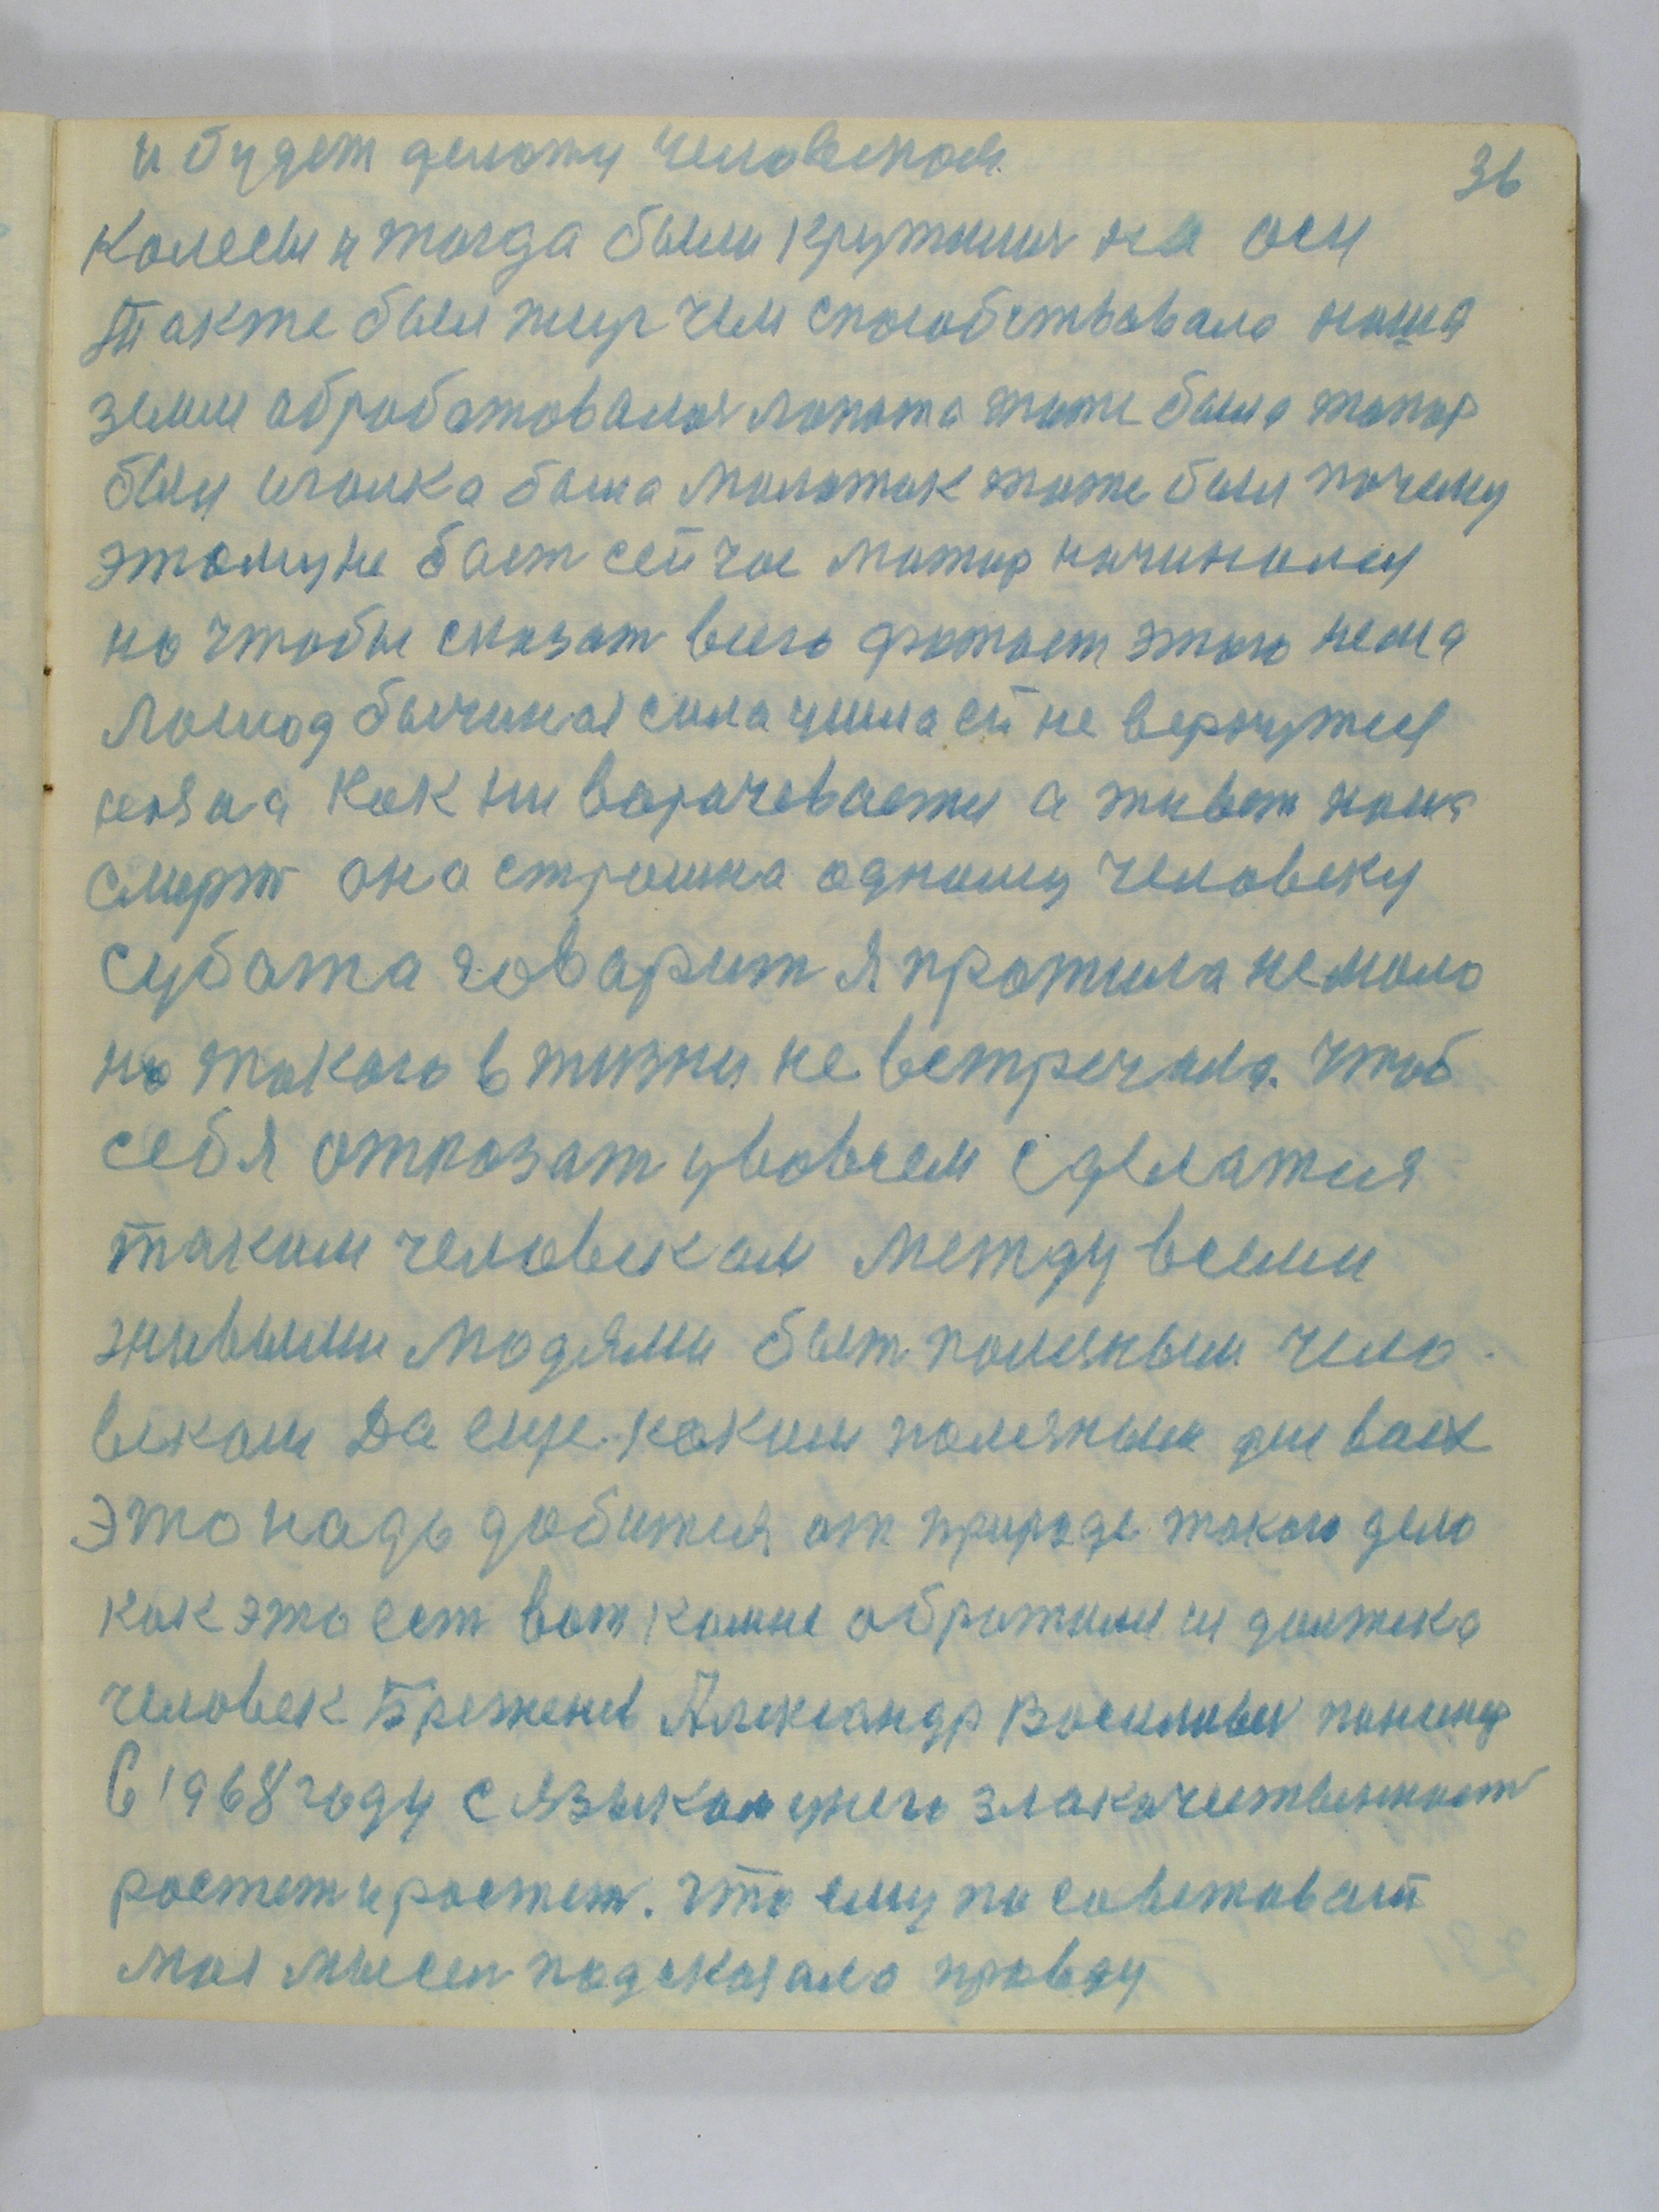 и будет делоти человеком.
36
Колесы и тогда были крутилися на оси
Также был жир чем способствовало наша
земля обработовалоя лопата тоже была топор
был иголка была молоток тоже был почему
этому не бает сейчас мотор начинался
но чтобы сказат всего фатает этого нема
Лошод бычиная сила ушла ей не вернутся
назад как ни ворачевается а живет наша
Смерт она страшна одному человеку
Субота говарит я прожила немало
но такого в жизни не встречала. Чтоб
себя отказат у вовсем сделатся
таким человекам между всеми
живыми людями быт полезным чело
веком Да еще каким полезным для всех
это надо добится от природе такого дело
как это ест вот комне обратился должека
человек Брежнев Александр Василивеч
С 1968 году с языком унего злокачественност
ростет и ростет. Что ему по советоват
моя мысел подсказало правду